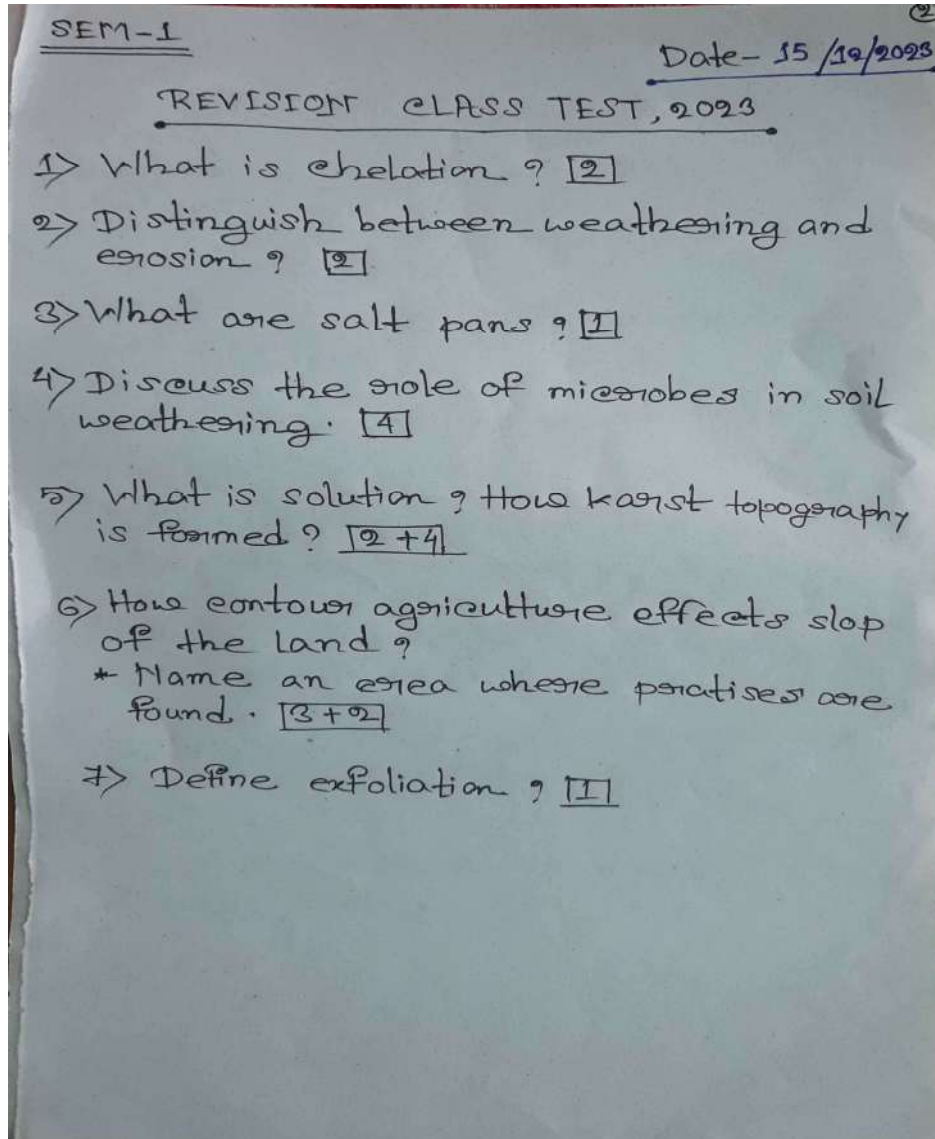 2
SEM-1
Date- 15/12/2023
REVISION CLASS TEST, 2023
1> What is chelation ? [2]
2> Distinguish between weathering and
erosion ? [2]
3> What are salt pans ? [1]
4> Discuss the role of microbes in soil
weathering. [4]
5> What is solution ? How karst topography
is formed ? [2+4]
6> How contour agriculture effects slop
of the land ?
* Name an erea where pratises are
found. [3+2]
7> Define exfoliation ? [1]